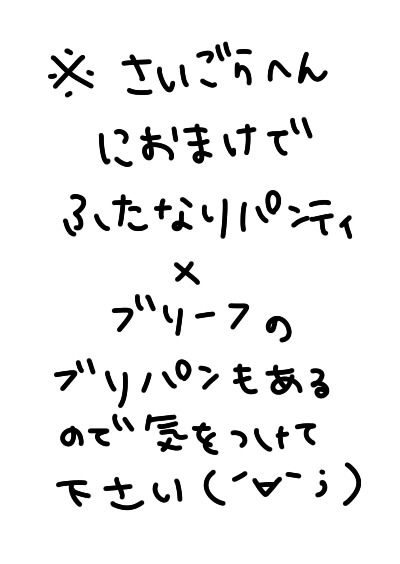 ※さいごらへん
におまけで
ふたなりパンティ
×
ブリーフの
ブリパンもある
ので気をつけて
下さい(´∀｀;)